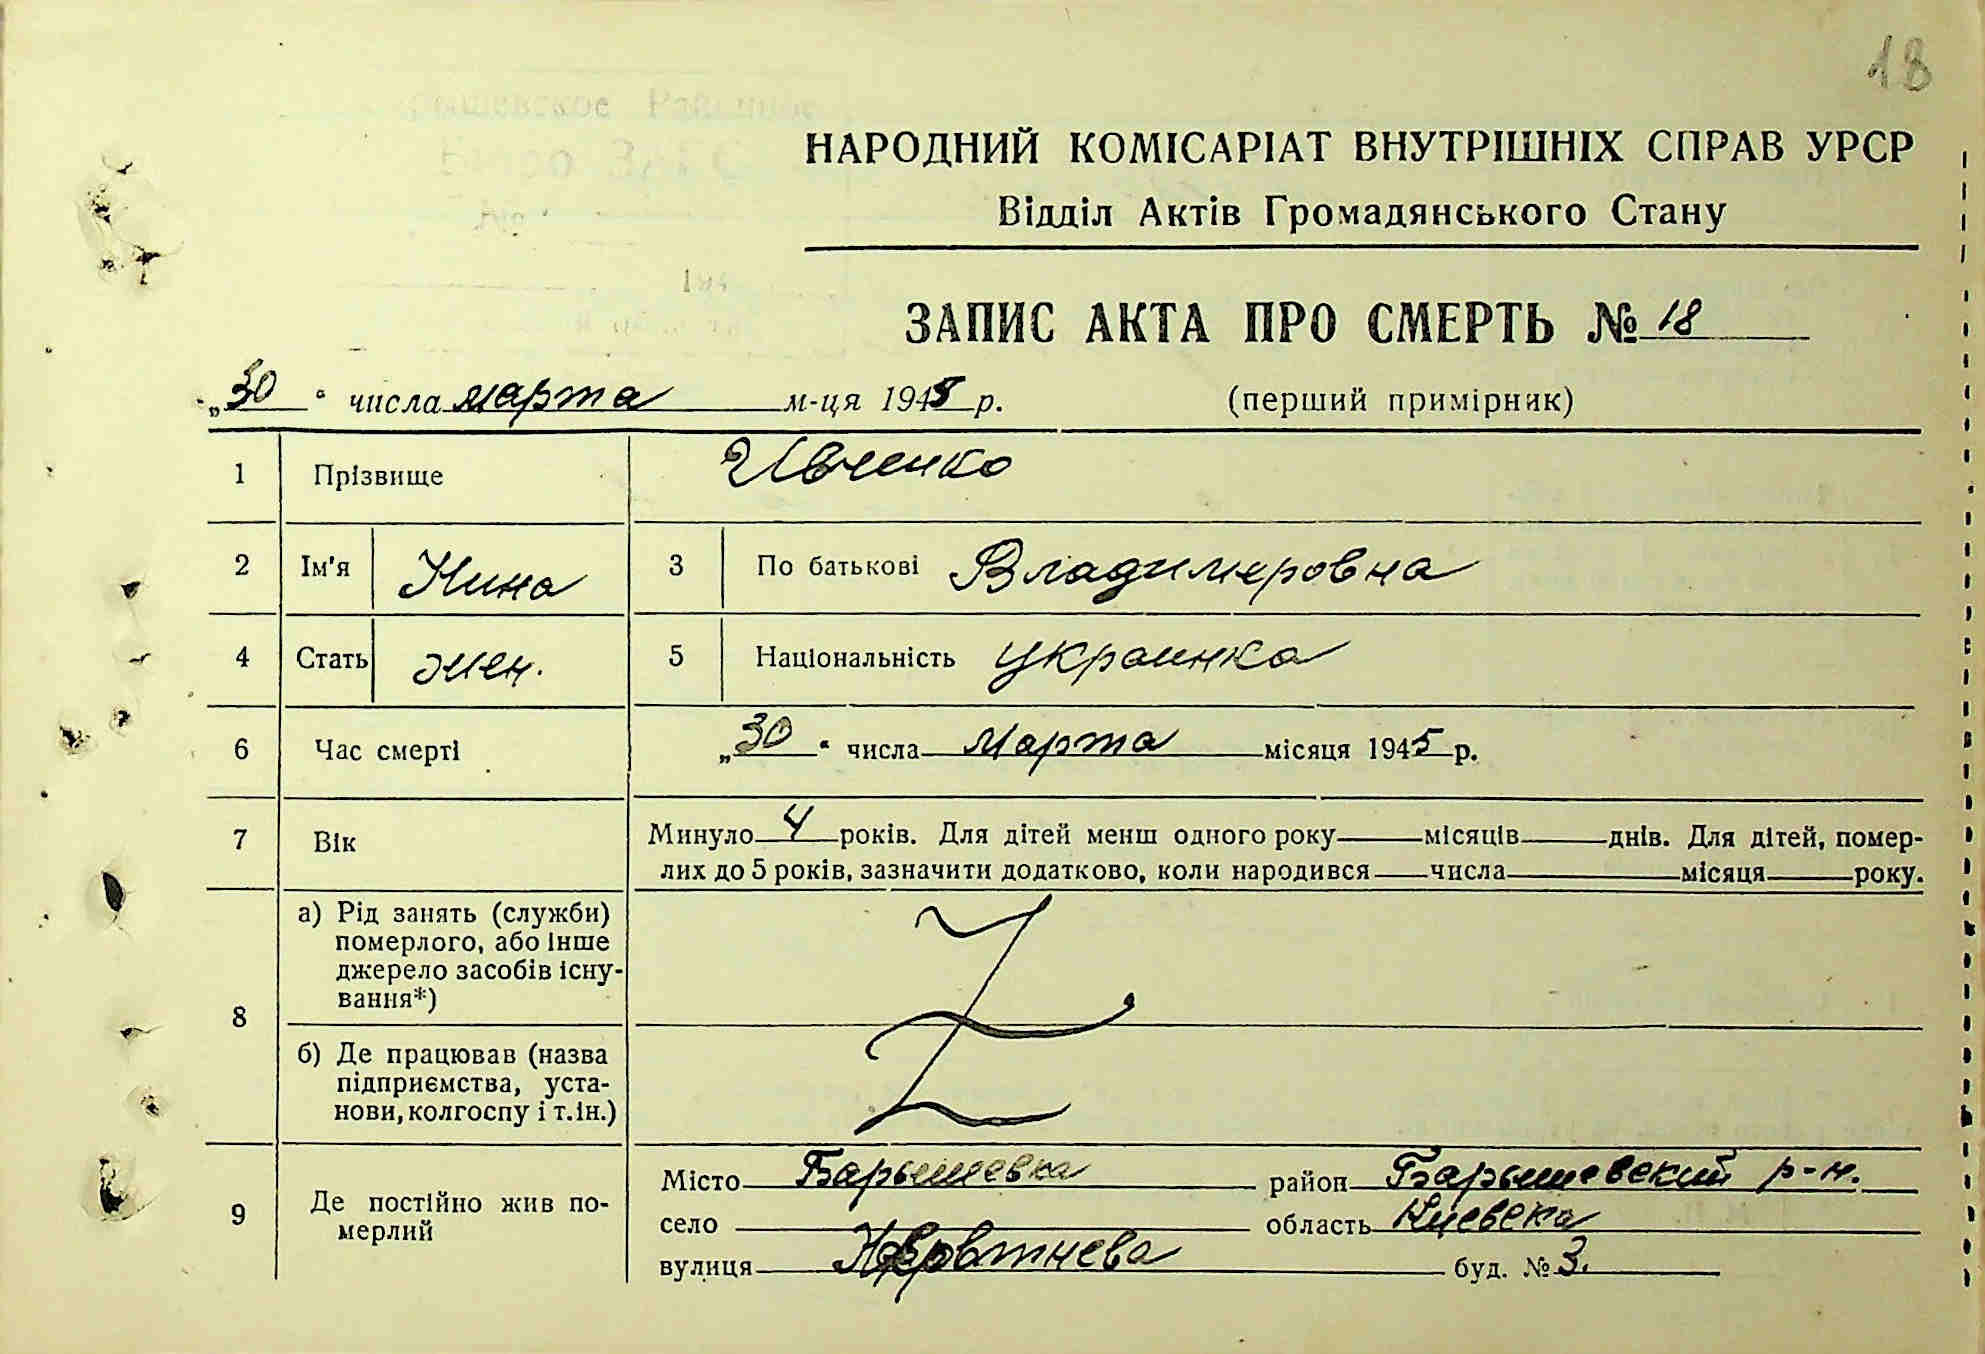 18
рышевское Районное
Бюро ЗАГС
№
194
НАРОДНИЙ КОМІСАРІАТ ВНУТРІШНІХ СПРАВ УРСР
Відділ Актів Громадянського Стану
ЗАПИС АКТА ПРО СМЕРТЬ № 18
„30“ числа марта м-ця 1945 р. (перший примірник)
1 Прізвище Ивченко
2 Ім'я Нина 3 По батькові Владимеровна
4 Стать жен. 5 Національність украинка
6 Час смерті „30“ числа марта місяця 1945 р.
7 Вік Минуло 4 років. Для дітей менш одного року місяців днів. Для дітей, помер-
лих до 5 років, зазначити додатково, коли народився числа місяця року.
8 а) Рід занять (служби)
померлого, або інше
джерело засобів існу-
вання*)
б) Де працював (назва
підприємства, уста-
нови, колгоспу і т.ін.)
9 Де постійно жив по-
мерлий
Місто Барышевка район Барышевский р-н.
село область Киевска
вулиця буд. № 3.